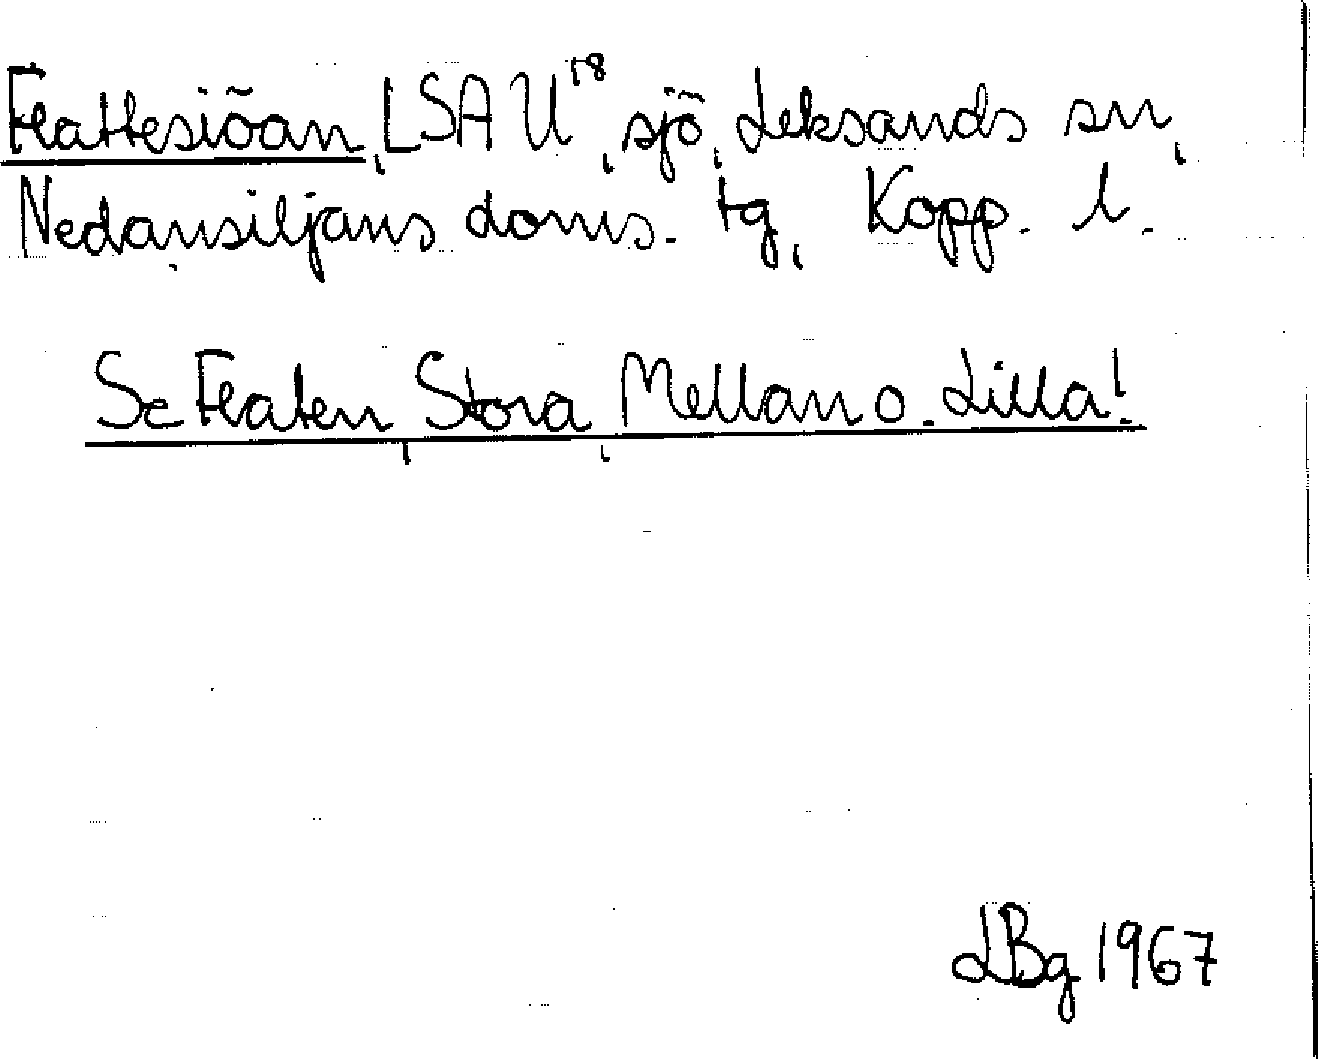 Flattesiöan, LSA U18, sjö, Leksands sn,
Nedansiljans doms. tg, Kopp. l.
Se Flaten, Stora, Mellan o. Lilla!
LBg 1967